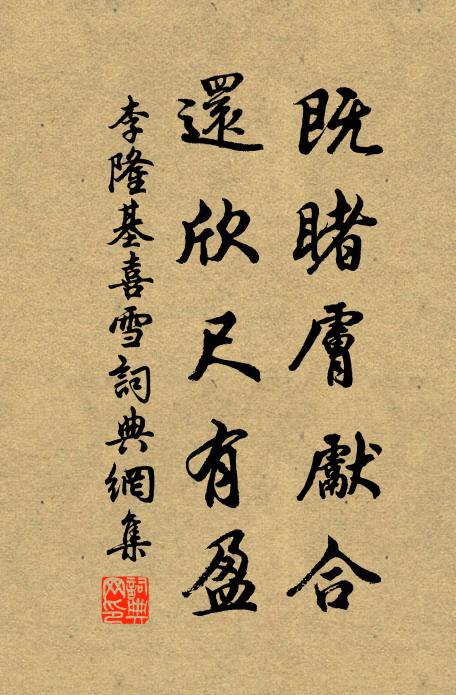 既睹膚獻合
還欣尺有盈
李隆基喜雪詞典網集
詞典網印